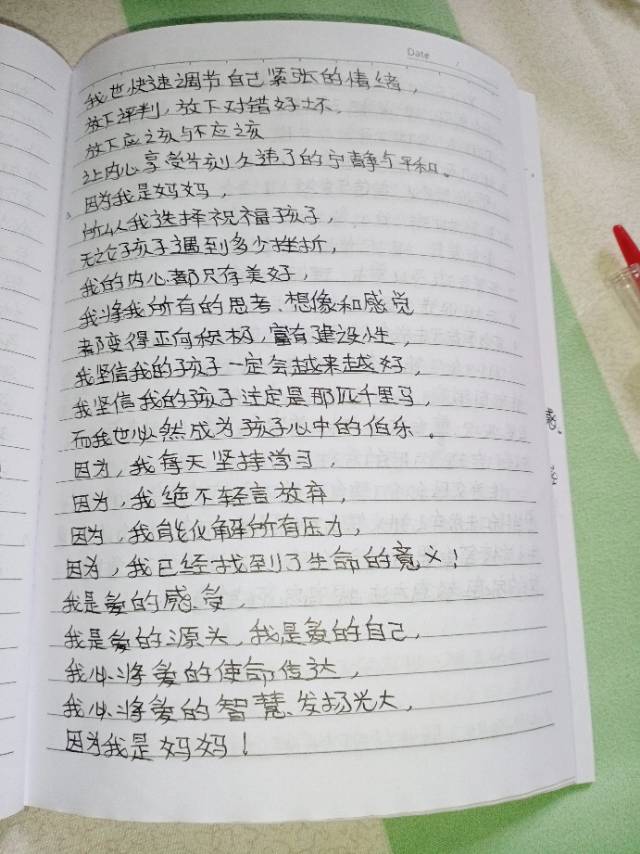 Date
我也快速调节自己紧张的情绪，
放下评判，放下对错好坏，
放下应该与不应该
让内心享受片刻久违了的宁静与平和。
因为我是妈妈，
所以我选择祝福孩子，
无论孩子遇到多少挫折，
我的内心都只存美好，
我将我所有的思考、想像和感觉
都变得正向积极，富有建设性，
我坚信我的孩子一定会越来越好，
我坚信我的孩子注定是那匹千里马，
而我也必然成为孩子心中的伯乐。
因为，我每天坚持学习，
因为，我绝不轻言放弃，
因为，我能化解所有压力，
因为，我已经找到了生命的意义！
我是爱的感受，
我是爱的源头，我是爱的自己，
我必将爱的使命传达，
我必将爱的智慧、发扬光大，
因为我是妈妈！